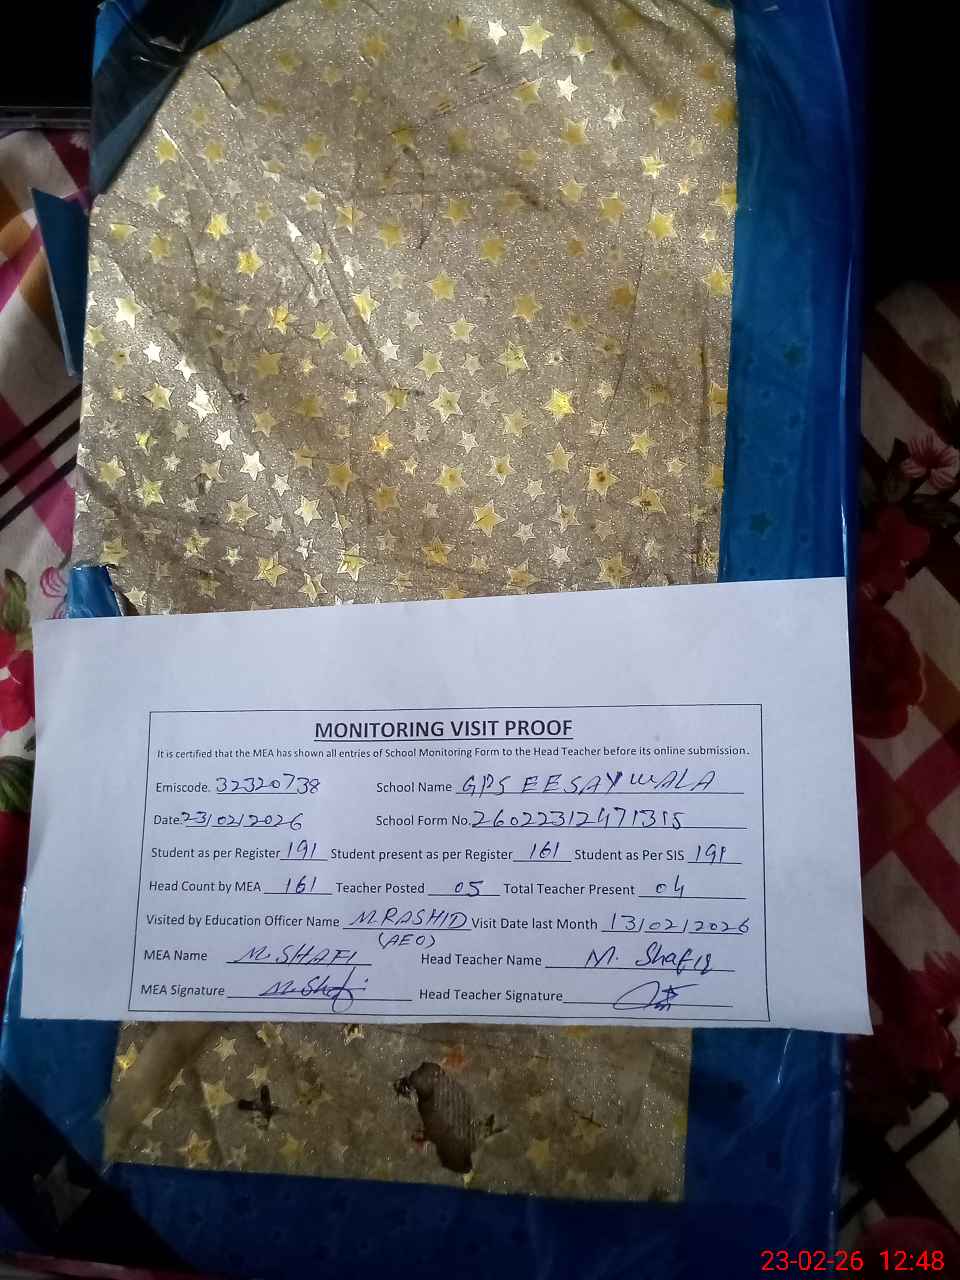 MONITORING VISIT PROOF
It is certified that the MEA has shown all entries of School Monitoring Form to the Head Teacher before its online submission.
Emiscode. 32320738 School Name GPS EESAYWALA
Date. 23/02/2026 School Form No. 26022312471315
Student as per Register 191 Student present as per Register 161 Student as Per SIS 191
Head Count by MEA 161 Teacher Posted 05 Total Teacher Present 04
Visited by Education Officer Name M.RASHID Visit Date last Month 13/02/2026
(AEO)
MEA Name M.SHAFI Head Teacher Name M. Shafiq
MEA Signature M.Shafi Head Teacher Signature
23-02-26 12:48